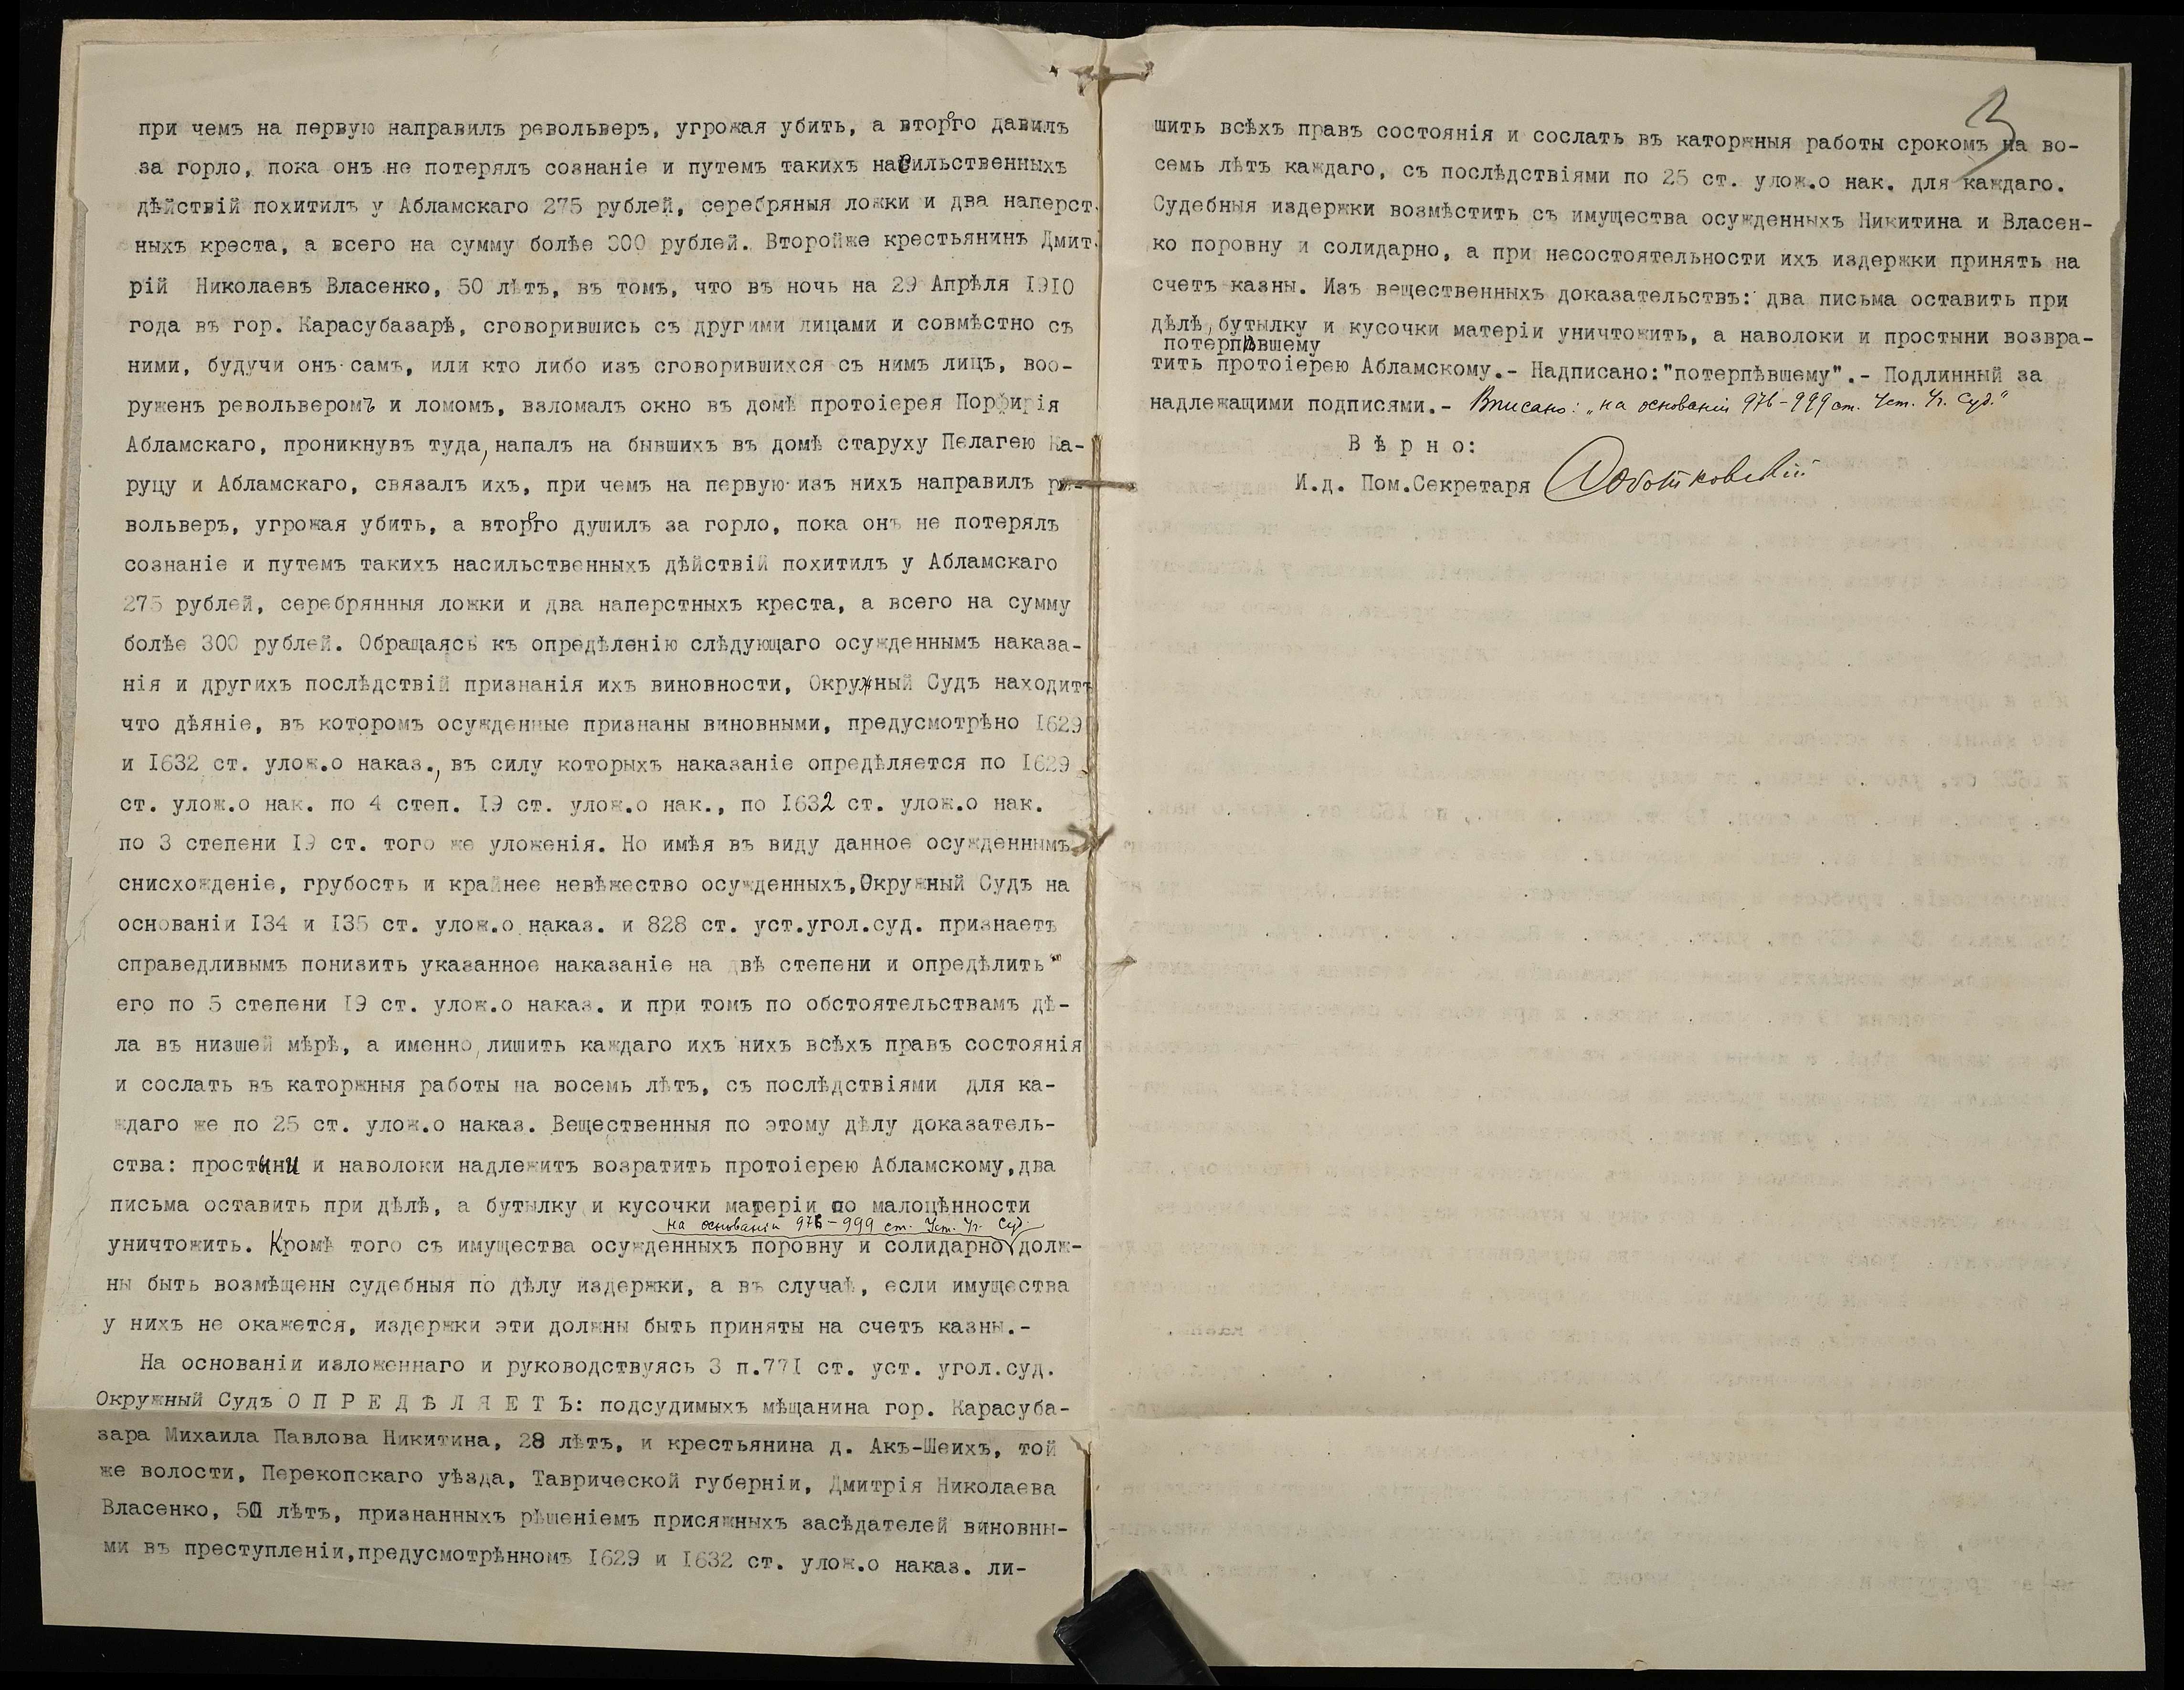 при чемъ на первую направилъ револьверъ, угрожая убить, а второго давилъ
за горло, пока онъ не потерялъ сознаніе и путемъ такихъ насильственныхъ
дѣйствій похитилъ у Абламскаго 275 рублей, серебряныя ложки и два наперст-
ныхъ креста, а всего на сумму болѣе 300 рублей. Второйже крестьянинъ Дмит-
рій Николаевъ Власенко, 50 лѣтъ, въ томъ, что въ ночь на 29 Апрѣля 1910
года въ гор. Карасубазарѣ, сговорившись съ другими лицами и совмѣстно съ
ними, будучи онъ самъ, или кто либо изъ сговорившихся съ нимъ лицъ, воо-
руженъ револьверомъ и ломомъ, взломалъ окно въ домѣ протоіерея Порфирія
Абламскаго, проникнувъ туда, напалъ на бывшихъ въ домѣ старуху Пелагею Ка-
руцу и Абламскаго, связалъ ихъ, при чемъ на первую изъ нихъ направилъ ре-
вольверъ, угрожая убить, а второго душилъ за горло, пока онъ не потерялъ
сознаніе и путемъ такихъ насильственныхъ дѣйствій похитилъ у Абламскаго
275 рублей, серебрянныя ложки и два наперстныхъ креста, а всего на сумму
болѣе 300 рублей. Обращаясь къ опредѣленію слѣдующаго осужденнымъ наказа-
нія и другихъ послѣдствій признанія ихъ виновности, Окружный Судъ находитъ
что дѣяніе, въ которомъ осужденные признаны виновными, предусмотрѣно 1629
и 1632 ст. улож.о наказ., въ силу которыхъ наказаніе опредѣляется по 1629
ст. улож.о нак. по 4 степ. 19 ст. улож.о нак., по 1632 ст. улож.о нак.
по 3 степени 19 ст. того же уложенія. Но имѣя въ виду данное осужденнымъ
снисхожденіе, грубость и крайнее невѣжество осужденныхъ,Окружный Судъ на
основаніи 134 и 135 ст. улож.о наказ. и 828 ст. уст.угол.суд. признаетъ
справедливымъ понизить указанное наказаніе на двѣ степени и опредѣлить
его по 5 степени 19 ст. улож.о наказ. и при томъ по обстоятельствамъ дѣ-
ла въ низшей мѣрѣ, а именно, лишить каждаго ихъ нихъ всѣхъ правъ состоянія
и сослать въ каторжныя работы на восемь лѣтъ, съ послѣдствіями для ка-
ждаго же по 25 ст. улож.о наказ. Вещественныя по этому дѣлу доказатель-
ства: простыни и наволоки надлежитъ возратить протоіерею Абламскому,два
письма оставить при дѣлѣ, а бутылку и кусочки матеріи по малоцѣнности
на основаніи 976-999 ст. Уст. Уг. Суд.
уничтожить. Кромѣ того съ имущества осужденныхъ поровну и солидарно долж-
ны быть возмѣщены судебныя по дѣлу издержки, а въ случаѣ, если имущества
у нихъ не окажется, издержки эти должны быть приняты на счетъ казны.-
На основаніи изложеннаго и руководствуясь 3 п.771 ст. уст. угол.суд.
Окружный Судъ О П Р Е Д Ѣ Л Я Е Т Ъ: подсудимыхъ мѣщанина гор. Карасуба-
зара Михаила Павлова Никитина, 28 лѣтъ, и крестьянина д. Акъ-Шеихъ, той
же волости, Перекопскаго уѣзда, Таврической губерніи, Дмитрія Николаева
Власенко, 50 лѣтъ, признанныхъ рѣшеніемъ присяжныхъ засѣдателей виновны-
ми въ преступленіи,предусмотрѣнномъ 1629 и 1632 ст. улож.о наказ. ли-
3
шить всѣхъ правъ состоянія и сослать въ каторжныя работы срокомъ на во-
семь лѣтъ каждаго, съ послѣдствіями по 25 ст. улож.о нак. для каждаго.
Судебныя издержки возмѣстить съ имущества осужденныхъ Никитина и Власен-
ко поровну и солидарно, а при несостоятельности ихъ издержки принять на
счетъ казны. Изъ вещественныхъ доказательствъ: два письма оставить при
дѣлѣ, бутылку и кусочки матеріи уничтожить, а наволоки и простыни возвра-
потерпѣвшему
тить протоіерею Абламскому.- Надписано:"потерпѣвшему".- Подлинный за
надлежащими подписями.- Вписано: „на основаніи 976-999 ст. Уст. Уг. Суд."
В ѣ р н о:
И.д. Пом.Секретаря